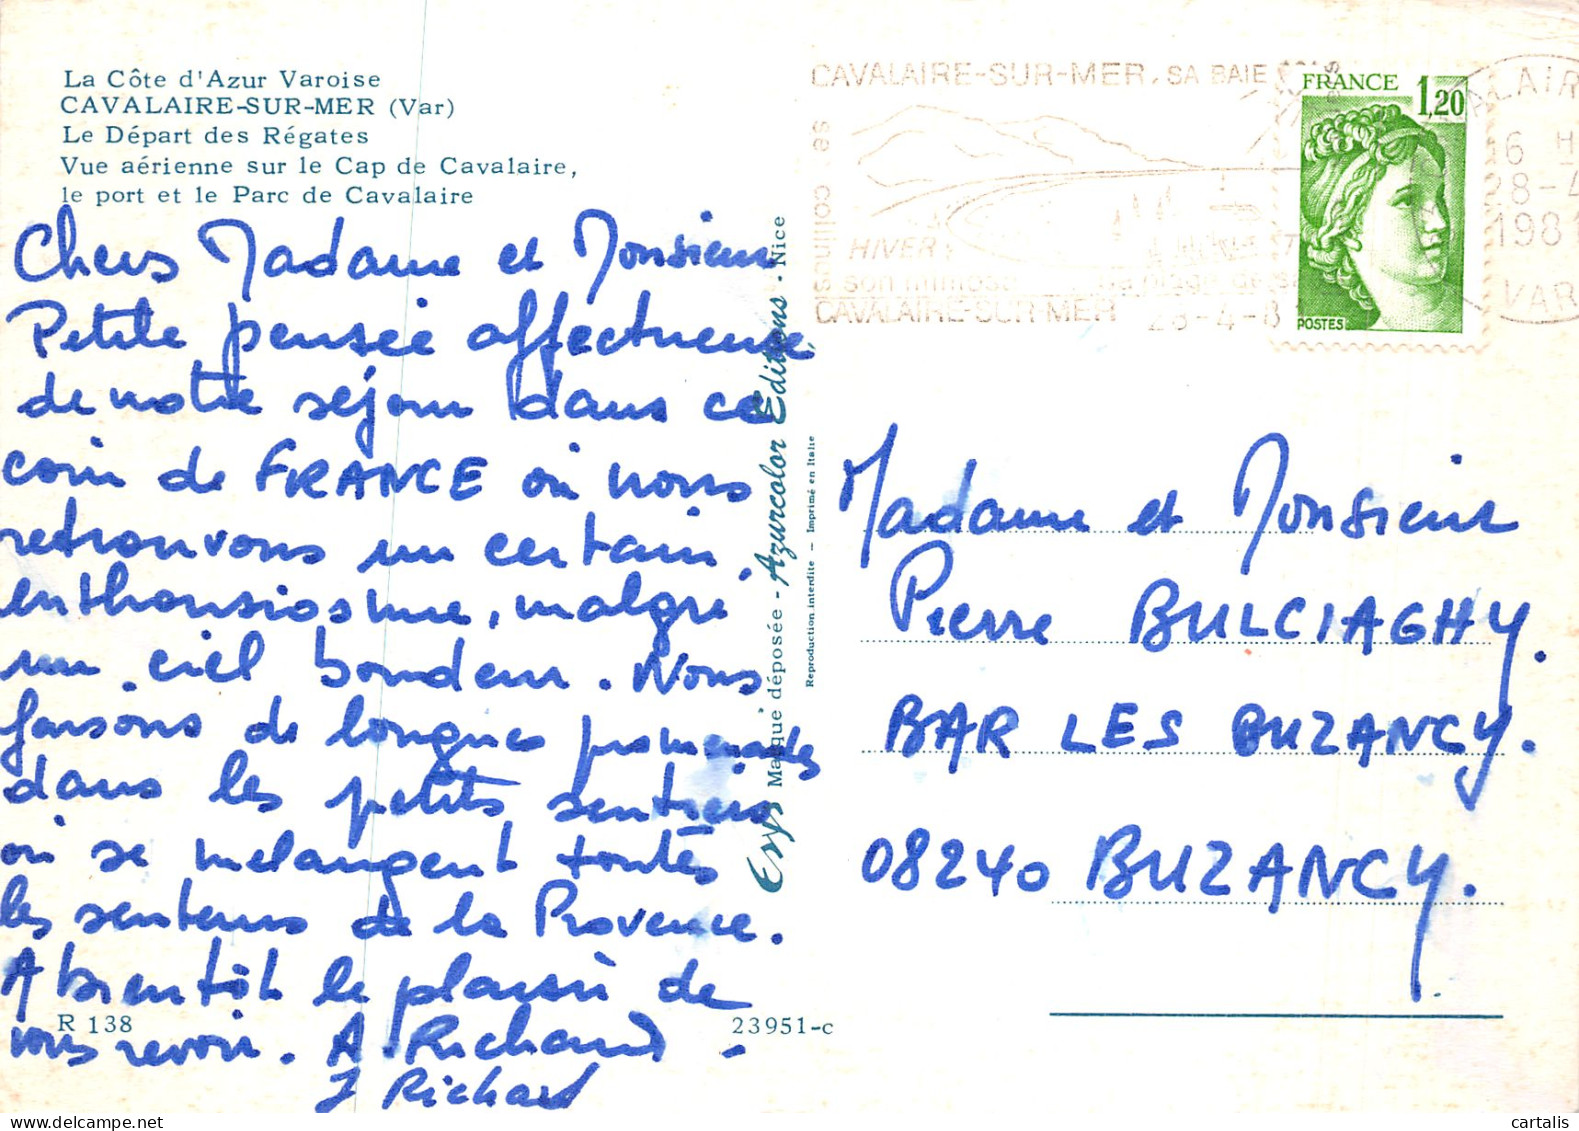 La Côte d'Azur Varoise
CAVALAIRE-SUR-MER (Var)
Le Départ des Régates
Vue aérienne sur le Cap de Cavalaire,
le port et le Parc de Cavalaire
Chers Madame et Monsieur
Petite pensée affectueuse,
de notre séjour dans ce
coin de FRANCE où nous
retrouvons un certain
enthousiasme, malgré
un ciel boudeur. Nous
faisons de longues promenades
dans les petits sentiers
où se mélangent toutes
les senteurs de la Provence.
A bientôt le plaisir de
vous revoir. A. Richard -
J Richard
R 138
23951-c
Erys Marque déposée - Azurcolor Editions - Nice
Reproduction interdite - Imprimé en Italie
CAVALAIRE-SUR-MER, SA BAIE
ses collines
HIVER
son mimosa
sa plage de s
CAVALAIRE-SUR-MER
28-4-8
FRANCE 1,20
POSTES
ALAIR
16 H
28-4
1981
VAR
Madame et Monsieur
Pierre BULCIAGHY.
BAR LES BUZANCY.
08240 BUZANCY.
cartalis